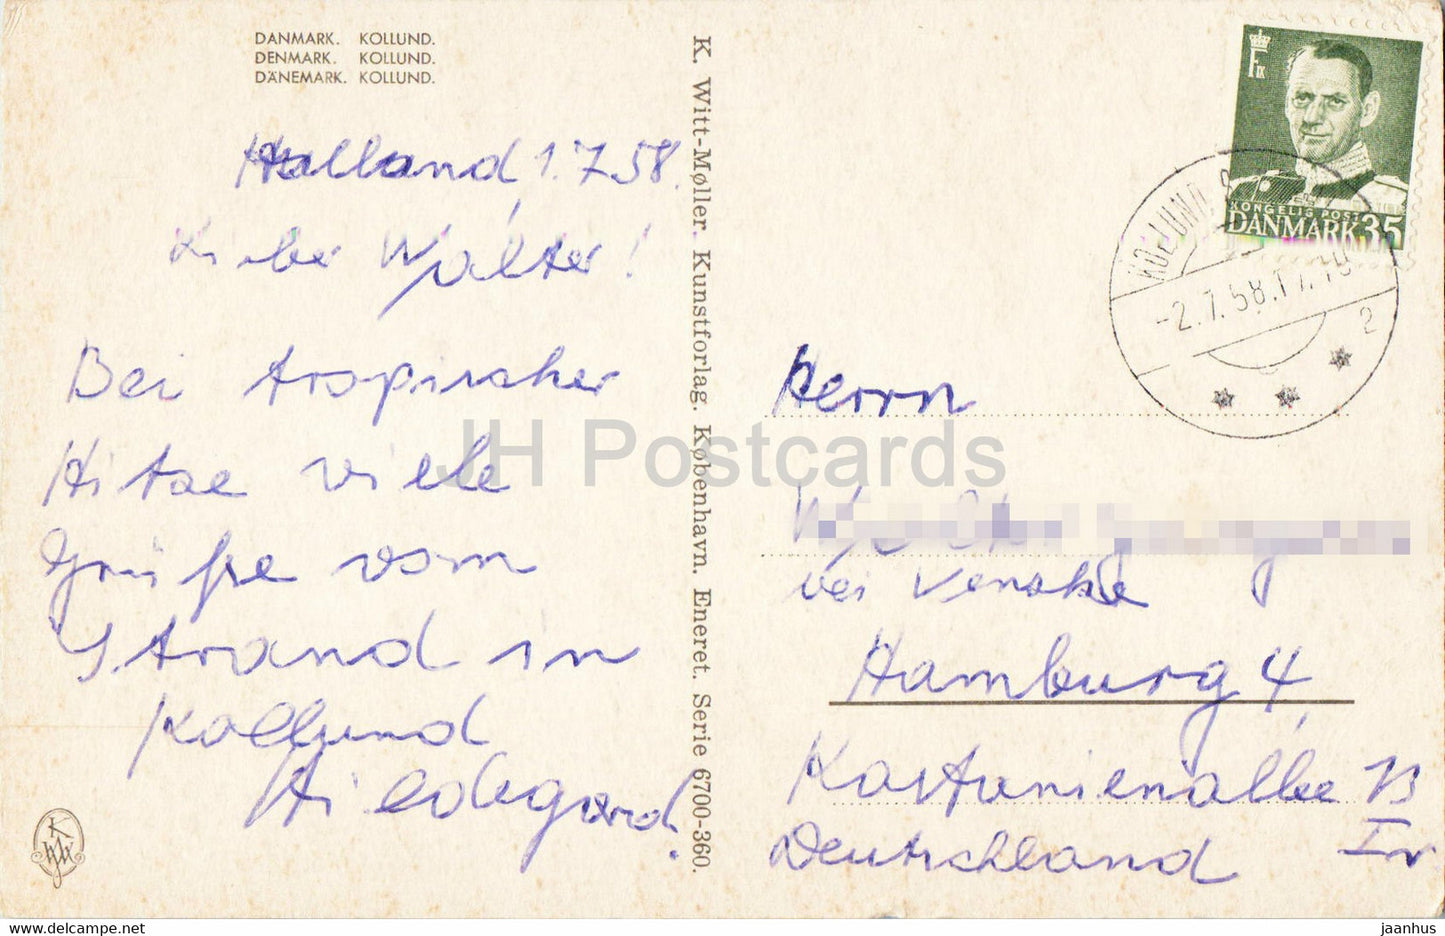 DANMARK. KOLLUND.
DENMARK. KOLLUND.
DÄNEMARK. KOLLUND.
Kolland, 1.7.58.
Lieber Walter!
Bei tropischer
Hitze viele
Grüße vom
Strand in
Kollund
Hildegard.
K. Witt-Møller. Kunstforlag. København. Eneret. Serie 6700-360.
F IX
KONGELIG POST
DANMARK 35
KOLLUND
-2.7.58.17.
2
Herrn
bei Venske
Hamburg 4,
Kastanienallee 13
Deutschland
JH Postcards
KWM
www.delcampe.net
jaanhus